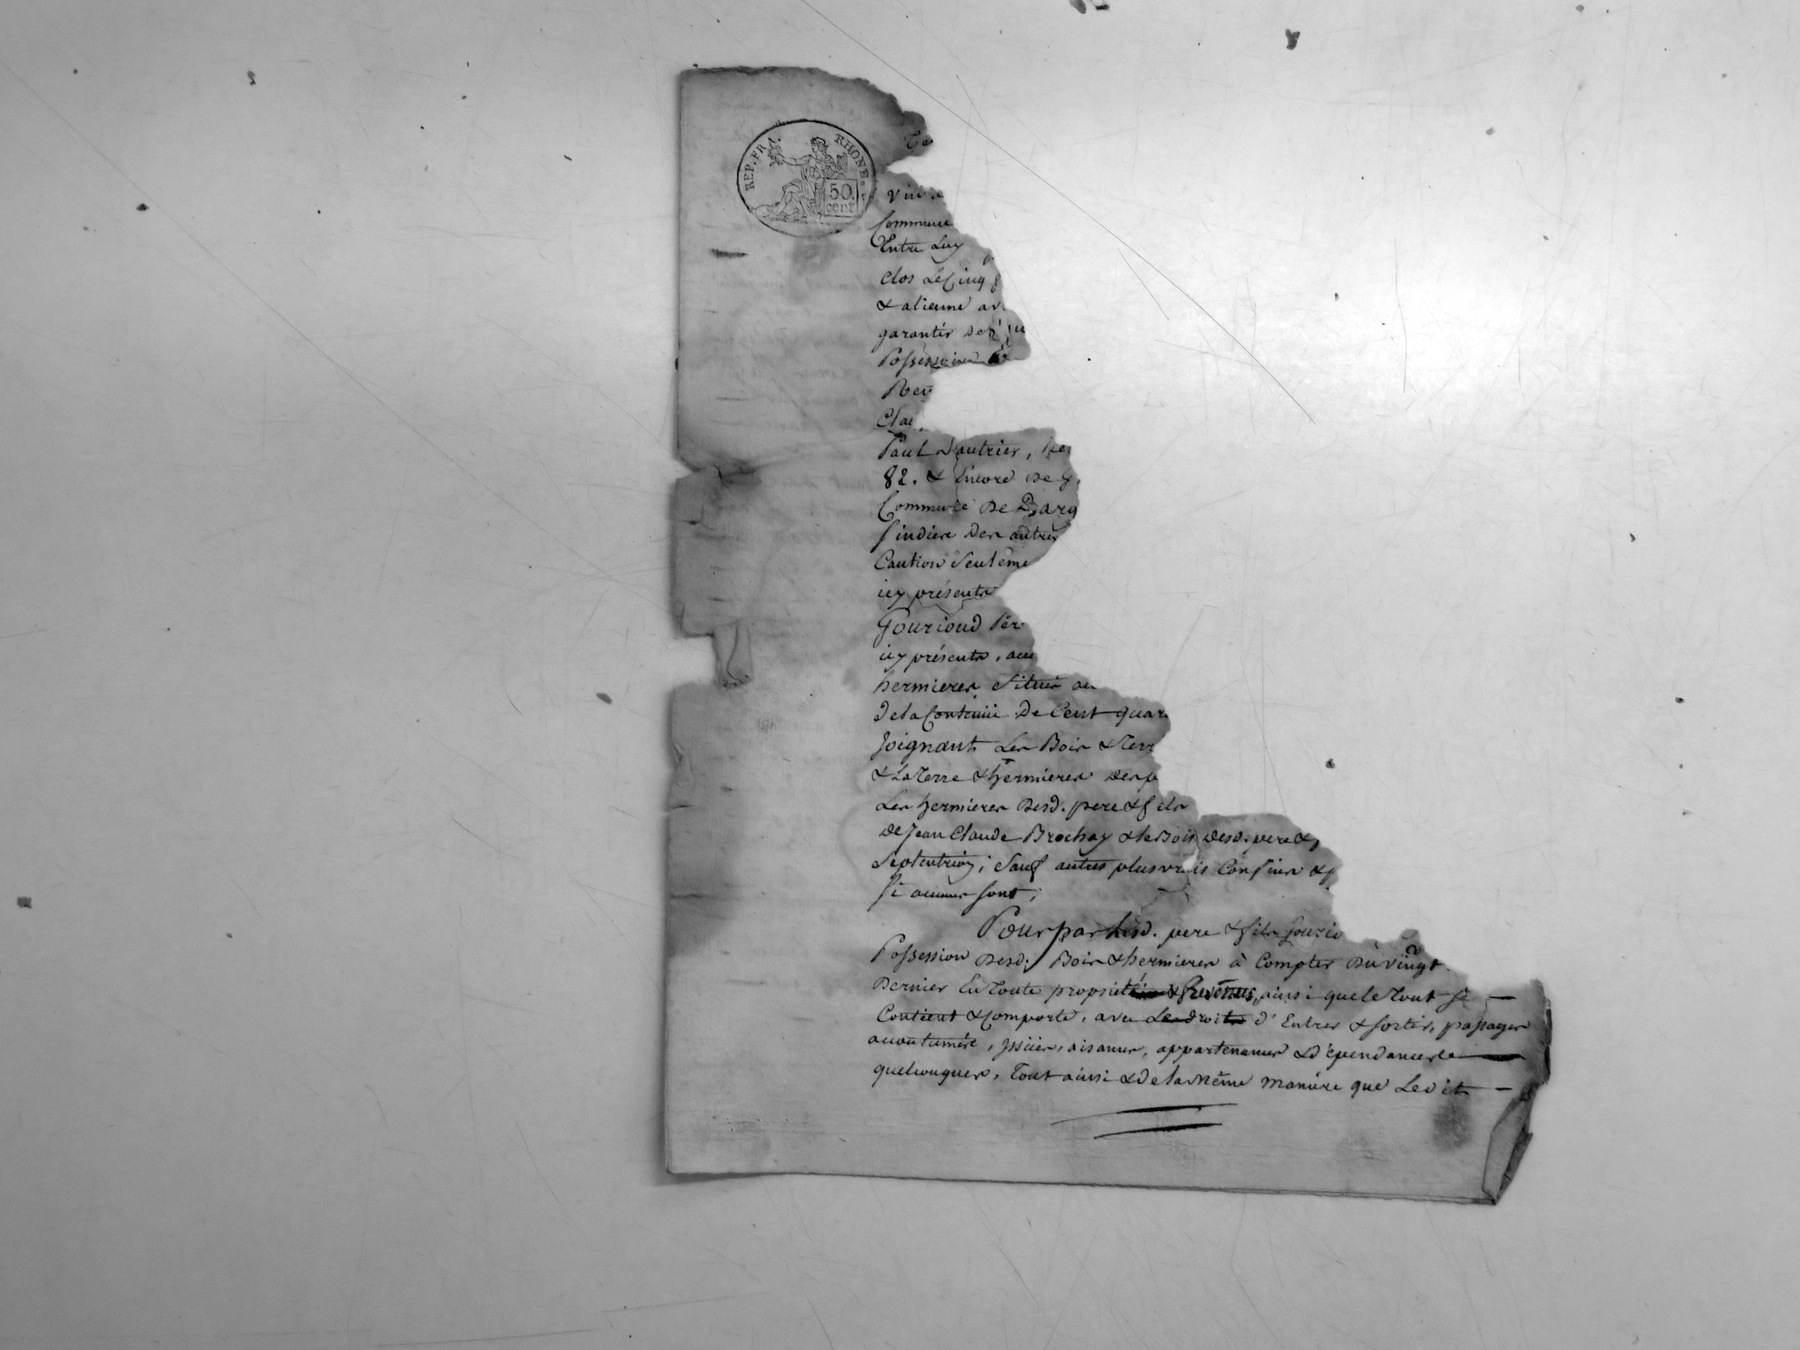 REP. FRA. RHONE.
50
cent
Commune
Entre Luy
Clos Le Cinq
& alienné av
garantir de
Possessoire
Rey
Clau
Paul Dautrier,
82. & Encore de
Commune De Darg
Sindice des autres
Caution Seuleme
icy présents
Gouzioud Pér
icy présents, acc
hermieres Situé au
de la Contenüe De Cent quar
Joignant Les Bois & Terr
& La Terre & hermieres des p
Les hermieres desd. pere & fils
de Jean Claude Brochay & le Bois desd. pere &
Septentrion; Sauf autres plus vrais Confins &
Si aucuns sont;
Pour par lesd. pere & fils Gouzio
Possession desd. Bois & hermieres à Compter du vingt
Dernier En Toute propriété ainsi que le Tout se
Contient & Comporte, avec Les droits d'Entrer & sortir, passages
accoutumés, Issües, aisances, appartenances & dépendances
quelconques, Tout ainsi & de la Même Maniére que Ledit